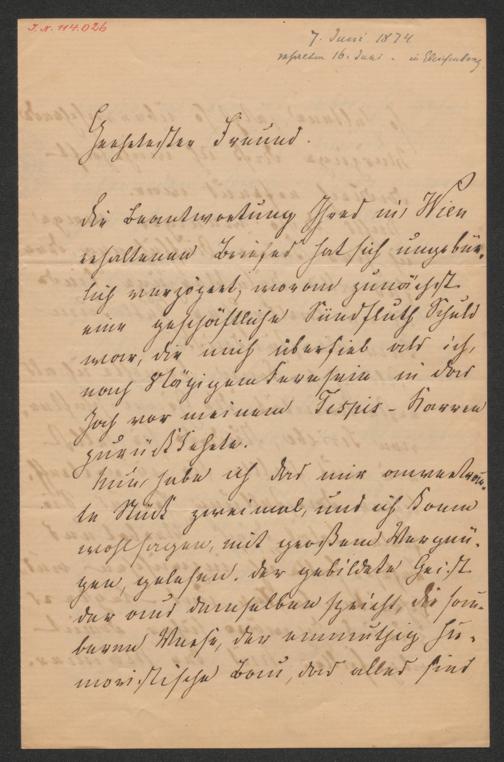 I.N. 114.026
7. Juni 1874
erhalten 16. Juni. in Gleichenberg
Geehrtester Freund.
Die Beantwortung Ihres in Wien
erhaltenen Briefes hat sich ungebür-
lich verzögert, woran zunächst
eine geschäftliche Sündfluth Schuld
war, die mich überfiel als ich,
nach 8tägigem Fernsein in das
Joch vor meinem Tespis-Karren
zurückkehrte.
Nun habe ich das mir anvertrau-
te Stück zweimal, und ich kann
wohl sagen, mit großem Vergnü-
gen, gelesen. Der gebildete Geist
der aus demselben spricht, die sau-
beren Verse, der anmuthig hu-
moristische Bau, das alles sind